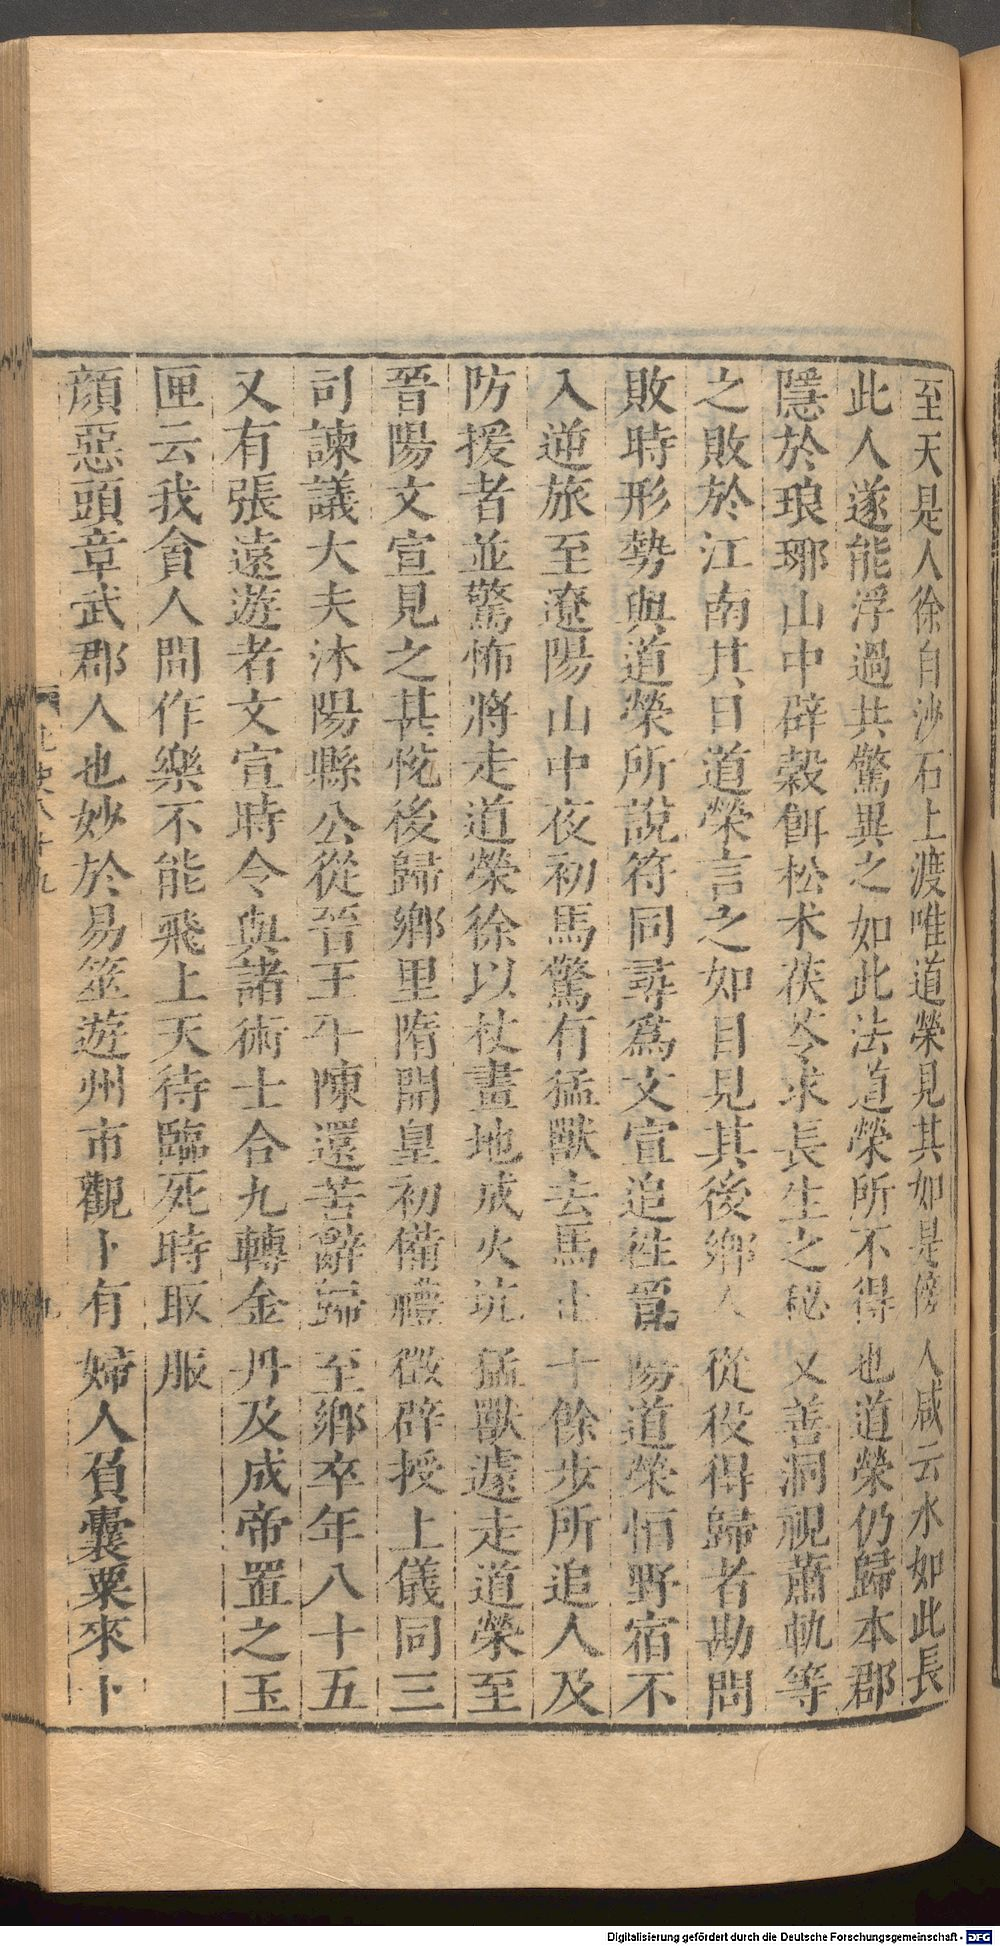 至天是人徐自沙石上渡唯道榮見其如是傍人咸云水如此長
此人遂能浮過共驚異之如此法道榮所不得也道榮仍歸本郡
隱於琅琊山中辟穀餌松朮茯苓求長生之秘又善洞視蕭軌等
之敗於江南其日道榮言之如目見其後鄉人從役得歸者勘問
敗時形勢與道榮所說符同尋爲文宣追往晉陽道榮恒野宿不
入逆旅至遼陽山中夜初馬驚有猛獸去馬止十餘步所追人及
防援者並驚怖將走道榮徐以杖畫地成火坑猛獸遽走道榮至
晉陽文宣見之甚悅後歸鄉里隋開皇初備禮徵辟授上儀同三
司諫議大夫沐陽縣公從晉王平陳還苦辭歸至鄉卒年八十五
又有張遠遊者文宣時令與諸術士合九轉金丹及成帝置之玉
匣云我貪人間作樂不能飛上天待臨死時取服
顔惡頭章武郡人也妙於易筮遊州市觀卜有婦人負囊粟來卜
北史八十九
九
Digitalisierung gefördert durch die Deutsche Forschungsgemeinschaft - DFG